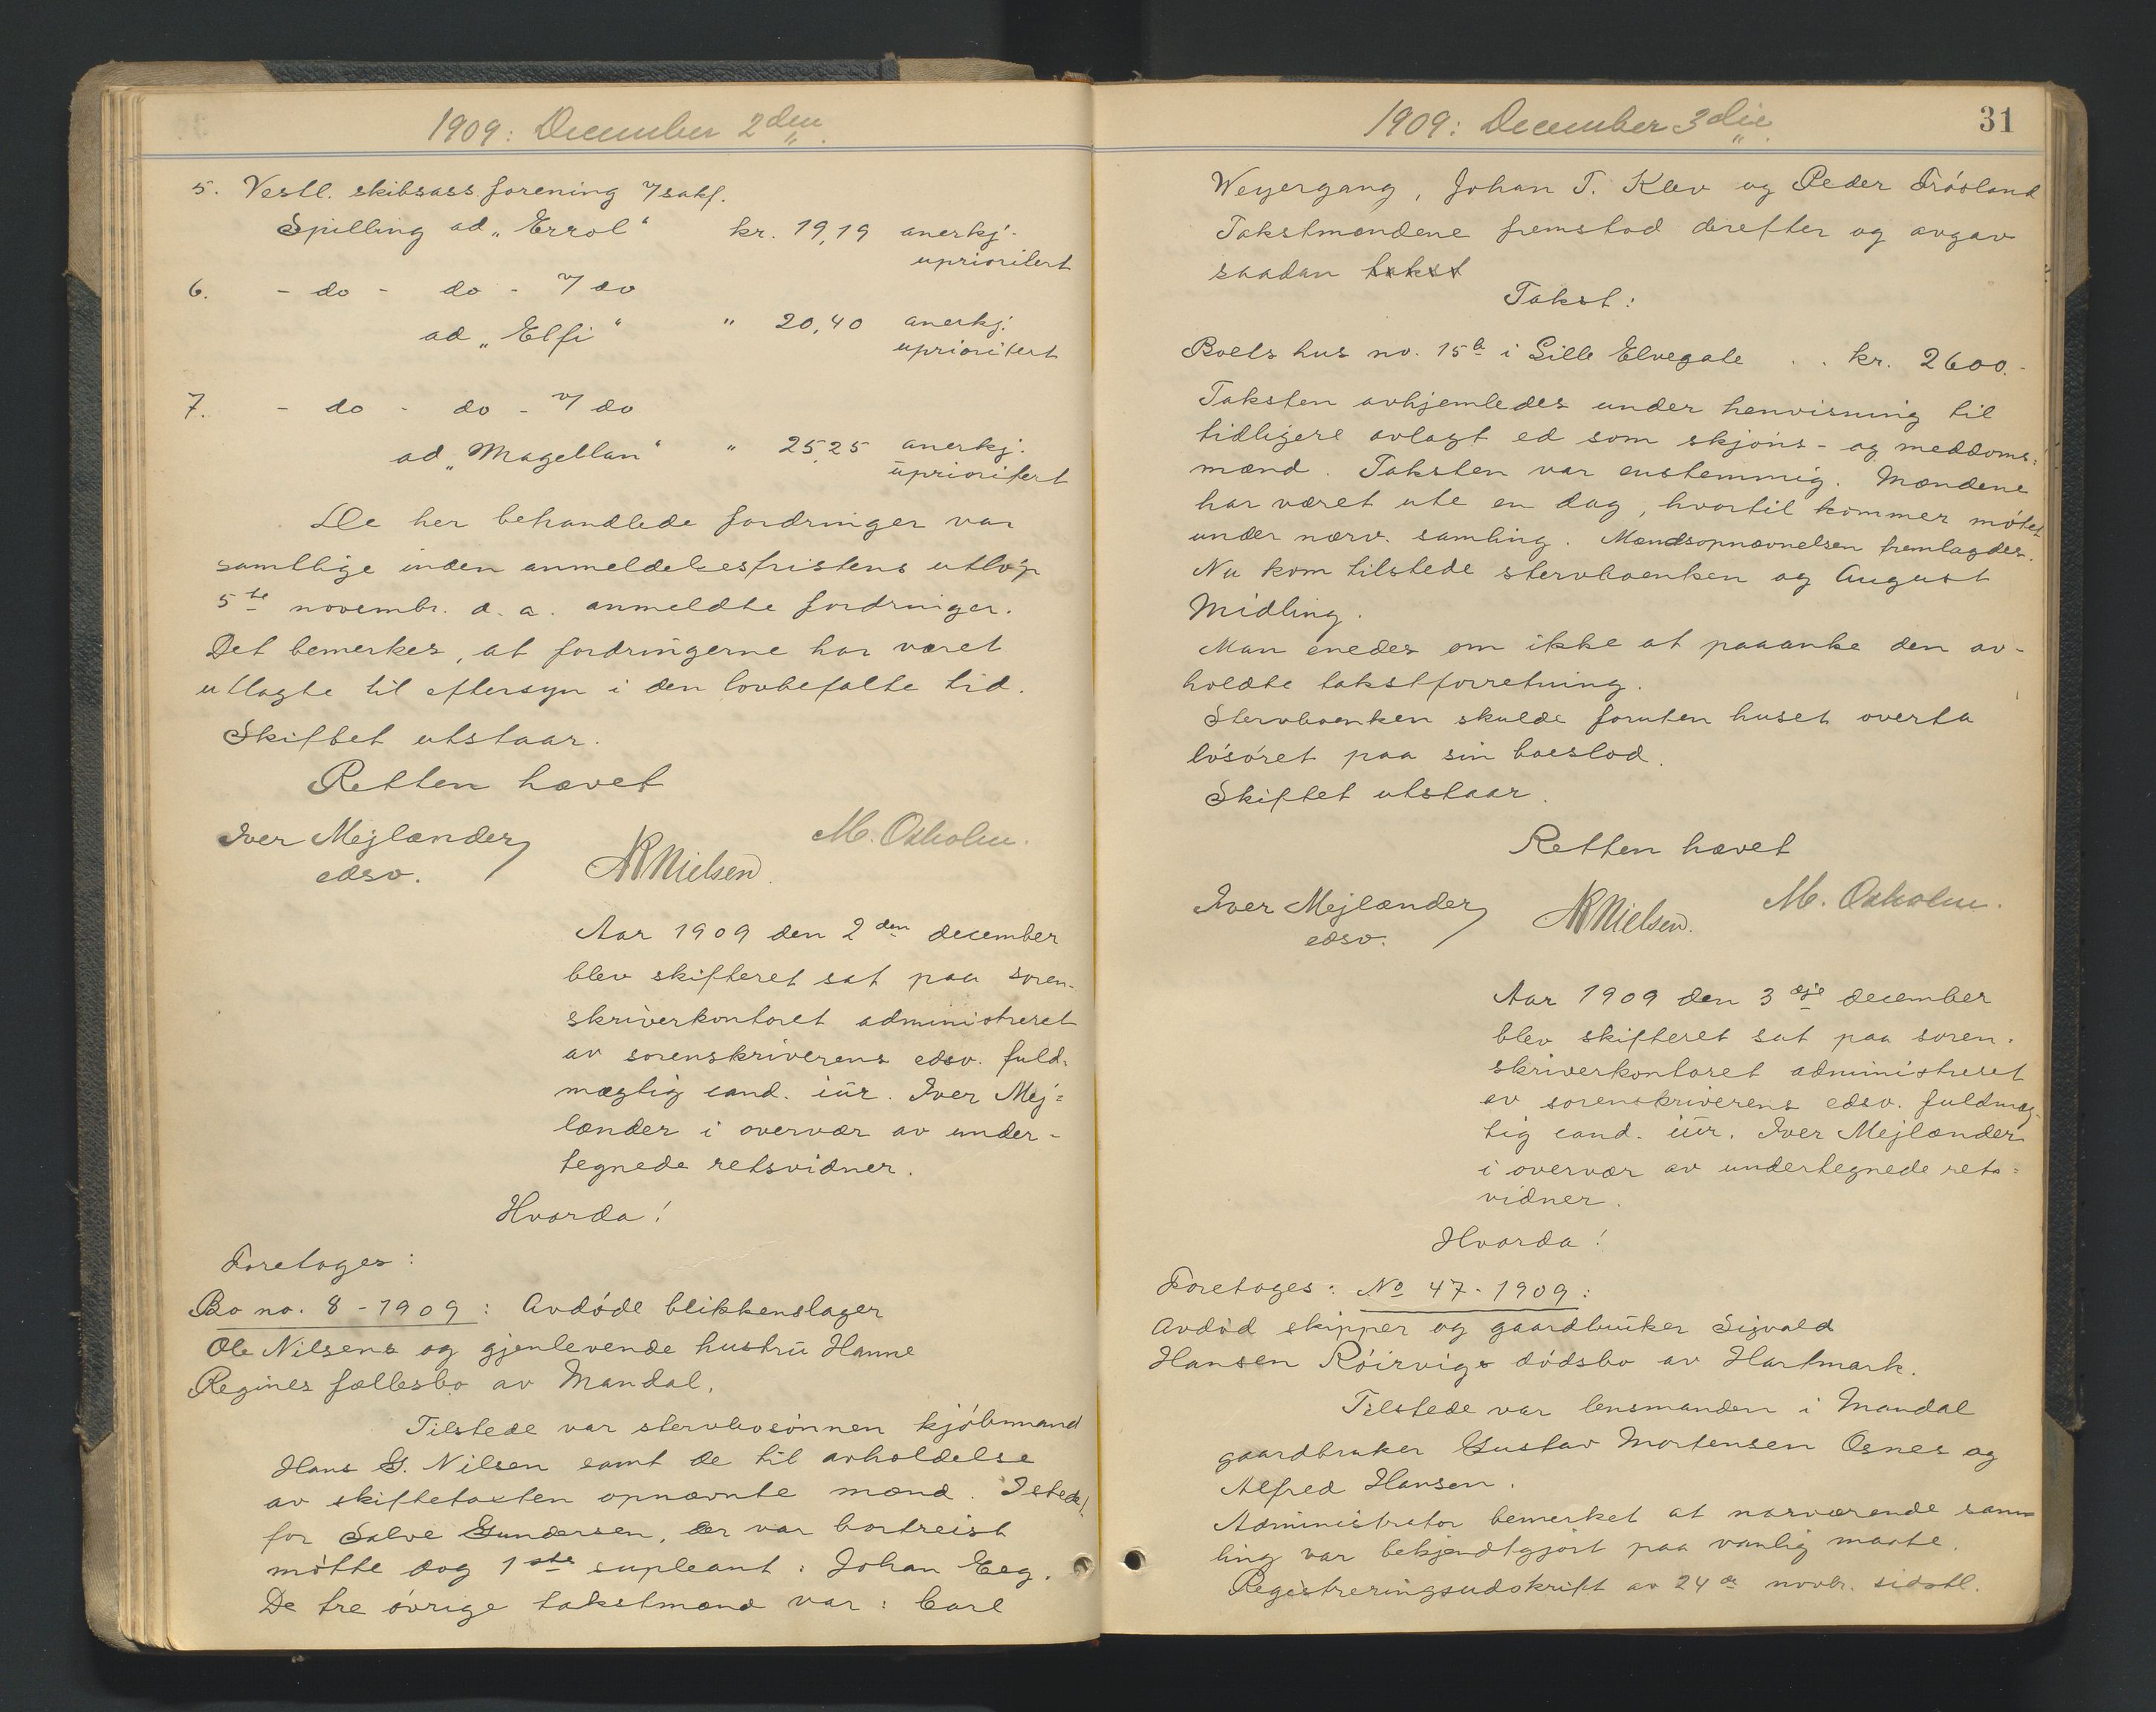 1909: December 2den
5. Vestl. skibsass. forening v/ sakf.
Spilling ad „Errol“ kr. 19,19 anerkj.
uprioritert
6. - do - do - v/ do
ad „Elfi“ " 20,40 anerkj.
uprioritert
7. - do - do - v/ do
ad „Magellan“ " 25,25 anerkj.
uprioritert
De her behandlede fordringer var
samtlige inden anmeldelsesfristens utløp
5te novembr. d. a. anmeldte fordringer.
Det bemerkes, at fordringerne har været
utlagte til eftersyn i den lovbefalte tid.
Skiftet utstaar.
Retten hævet
Iver Mejlænder
edsv.
NRNielsen
M. Oxholm.
Aar 1909 den 2den december
blev skifteret sat paa soren-
skriverkontoret administreret
av sorenskriverens edsv. fuld-
mægtig cand. iur. Iver Mej=
lænder i overvær av under-
tegnede retsvidner.
Hvorda!
Foretages:
Bo no. 8 - 1909: Avdøde blikkenslager
Ole Nilsens og gjenlevende hustru Hanne
Regines fællesbo av Mandal.
Tilstede var stervbosønnen kjøbmand
Hans G. Nilsen samt de til avholdelse
av skiftetaxten opnævnte mænd. Istedet
for Salve Gundersen, der var bortreist
møtte dog 1ste supleant: Johan Eeg.
De tre øvrige takstmænd var: Carl
1909: December 3die
31
Weyergang, Johan T. Klev og Peder Frøsland
Takstmændene fremstod derefter og avgav
saadan takst
Takst:
Boets hus no. 15b i Lille Elvegate . . kr. 2600.-
Taksten avhjemledes under henvisning til
tidligere avlagt ed som skjøns- og meddoms=
mænd. Taksten var enstemmig. Mændene
har været ute en dag, hvortil kommer møtet
under nærv. samling. Mændsopnævnelsen fremlagdes.
Nu kom tilstede stervboenken og August
Midling.
Man enedes om ikke at paaanke den av-
holdte takstforretning.
Stervboenken skulde foruten huset overta
løsøret paa sin boeslod.
Skiftet utstaar.
Retten hævet
Iver Mejlænder
edsv.
NRNielsen.
M. Oxholm.
Aar 1909 den 3dje december
blev skifteret sat paa soren-
skriverkontoret administreret
av sorenskriverens edsv. fuldmæg-
tig cand. iur. Iver Mejlænder
i overvær av undertegnede rets=
vidner.
Hvorda!
Foretages: No 47-1909:
Avdød skipper og gaardbruker Sigvald
Hansen Røirvigs dødsbo av Hartmark.
Tilstede var lensmanden i Mandal
gaardbruker Gustav Mortensen Osnes og
Alfred Hansen.
Administrator bemerket at nærværende sam
ling var bekjendtgjort paa vanlig maate.
Registreringsudskrift av 24de novbr. sidstl.